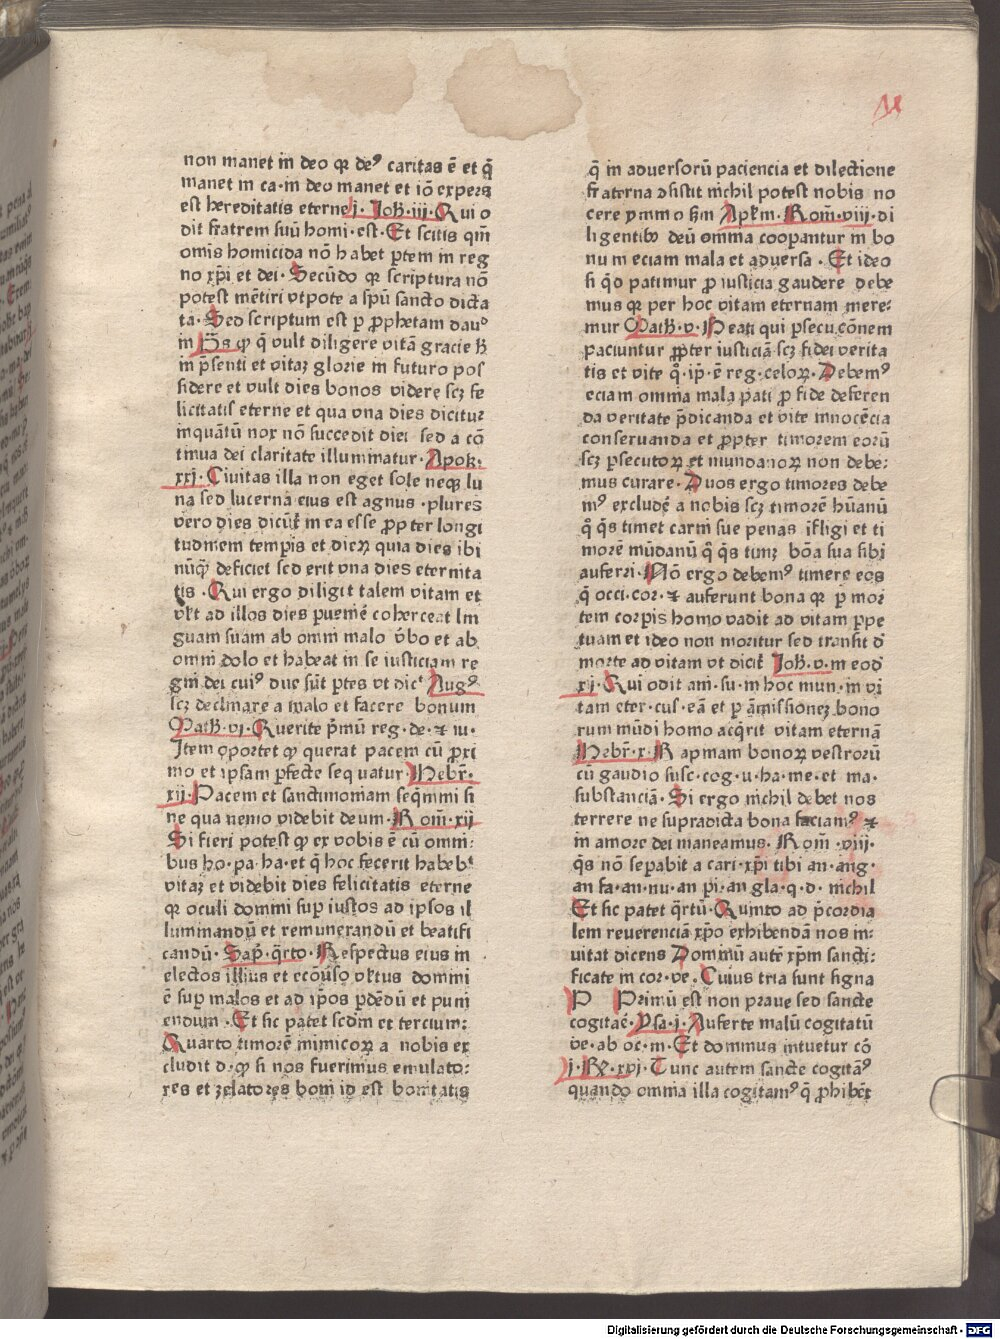 non manet in deo qꝛ deꝰ caritas ē et q̄
manet in ca·in deo manet et iō expers
est hereditatis eterne j· Joh̄·iij· Qui o
dit fratrem suū homi·est· Et scitis qm̄
omīs homicida nō habet ꝑtem in reg
no xp̄i et dei· Secūdo qꝛ scriptura nō
potest mētiri vtpote a spū sancto dicta
ta· Sed scriptum est ꝑ ꝓphetam dauᵈ
in p̄s ꝙ q̄ vult diligere vitā gracie h̄
in p̄senti et vitaꝫ glorie in futuro pos
sidere et vult dies bonos videre scꝫ fe
licitatis eterne et qua vna dies dicitur
inquātū nox nō succedit diei sed a cō
tinua dei claritate illuminatur· Apok·
xxj· Ciuitas illa non eget sole neqꝫ lu
na sed lucerna eius est agnus· plures
vero dies dicūt᷑ in ea esse ꝓpter longi
tudinem tempis et dieꝝ quia dies ibi
nūq̄ deficiet sed erit vna dies eternita
tis · Qui ergo diligit talem vitam et
vl̓t ad illos dies ꝑuenire coherceat lin
guam suam ab omni malo v̄bo et ab
omni dolo et habeat in se iusticiam re
gni dei cuiꝰ due sūt ꝑtes vt dic᷑ Augꝰ
scꝫ declinare a malo et facere bonum
Math̄·vj· Querite p̄mū reg·de·⁊ iu·
Item oportet ꝙ querat pacem cū ꝓxi
mo et ipsam ꝑfecte sequatur· Hebr̄·
xij· Pacem et sanctimoniam seq̄mini si
ne qua nemo videbit deum· Rom̄·xij
Si fieri potest ꝙ ex vobis ē cū omni:
bus ho·pa·ha·et q̄ hoc fecerit habebᵗ
vitaꝫ et videbit dies felicitatis eterne
qꝛ oculi domini suꝑ iustos ad ipsos il
luminandū et remunerandū et beatifi
candū· Sap̄·q̄rto· Respectus eius in
electos illius et ecōuso vl̓tus domini
ē suꝑ malos et ad ip̄os ꝑdēdū et puni
endum · Et sic patet scd̄m et tercium:
Quarto timorē inimicoꝝ a nobis ex
cludit d·ꝙ si nos fuerimus emulato:
res et zelatores boni id est bonitatis
q̄ in aduersorū paciencia et dilectione
fraterna ꝯsistit nichil potest nobis no
cere ymmo sm̄ Apl̄m· Rom̄·viij·di
ligentibꝫ deū omnia cooꝑantur in bo
num eciam mala et aduersa · Et ideo
si q̊d patimur ꝓ iusticia gaudere debe
mus qꝛ per hoc vitam eternam mere:
mur Math̄·v· Beati qui ꝑsecucōnem
paciuntur ꝓpter iusticiā scꝫ fidei verita
tis et vite q̄·ip̄·ē reg·celoꝝ· Debemꝰ
eciam omnia mala pati ꝓ fide deferen
da veritate p̄dicanda et vite innocēcia
conseruanda et ꝓpter timorem eorū
scꝫ ꝑsecutoꝝ et mundanoꝝ non debe:
mus curare· Duos ergo timores debe
mꝰ excludē a nobis scꝫ timorē hūanū
q̄ q̄s timet carni sue penas īfligi et ti
morē mūdanū q̄ q̄s timꝫ bōa sua sibi
auferri· Nō ergo debemꝰ timere eos
q̄ occi·cor·⁊ auferunt bona qꝛ ꝑ mor
tem corꝑis homo vadit ad vitam ꝑpe
tuam et ideo non moritur sed transit d̄
morte ad vitam vt dicit᷑ Joh̄·v·in eod̄
xij· Qui odit ani·su·in hoc mun·in vi
tam eter·cus·eā et ꝑ āmissioneꝫ bono
rum mūdi homo acq̄rit vitam eternā
Hebr̄·x· Rapinam bonoꝝ vestrorū
cū gaudio susc·cog·u·ha·me·et ma·
substanciā· Si ergo nichil debet nos
terrere ne supradicta bona faciamꝰ ⁊
in amore dei maneamus· Rom̄·viij·
q̄s nō seꝑabit a cari·xp̄i tibi an·ang·
an fa·an·nu·an pi·an gla·q·d· nichil
Et sic patet q̄rtū· Quinto ad p̄cordia
lem reuerenciā xp̄o exhibendā nos in:
uitat dicens Dominū autē xp̄m sancti:
ficate in cor·ve· Cuius tria sunt signa
P Primū est non praue sed sancte
cogitac̄· Ysa·j· Auferte malū cogitatū
ve·ab oc·m· Et dominus intuetur cō
j·Rꝝ·xvj· Tunc autem sancte cogitaꝰ
quando omnia illa cogitamꝰ q̄ ꝓhibēt
Digitalisierung gefördert durch die Deutsche Forschungsgemeinschaft · DFG